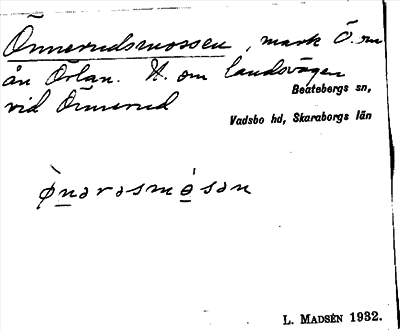 Önnerudsmossen, mark Ö. om
ån Örlan. N. om landsvägen
vid Önnerud
Beatebergs sn,
Vadsbo hd, Skaraborgs län
ø̀nərəsmósən
L. MADSÉN 1932.